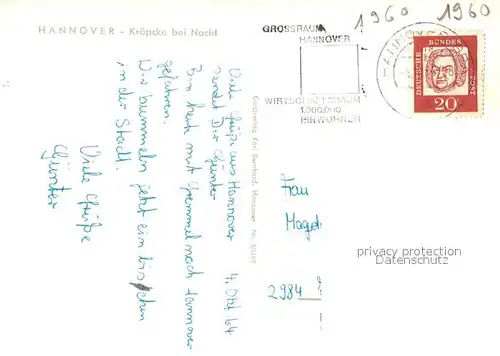 HANNOVER - Kröpcke bei Nacht
1960 1960
GROSSRAUM
HANNOVER
WIRTSCHAFTSRAUM
1.000.000
EINWOHNER
HANNOVER
DEUTSCHE BUNDESPOST
20
Viele Grüße aus Hannover
sendet Dir Günter
4. Okt 64
Bin heute mit nach Hannover
gefahren.
Wir bummeln jetzt ein bischen
in der Stadt.
Viele Grüße
Günter
Kunstverlag Karl Bernhard, Hannover Nr.
Frau
2984
privacy protection
Datenschutz